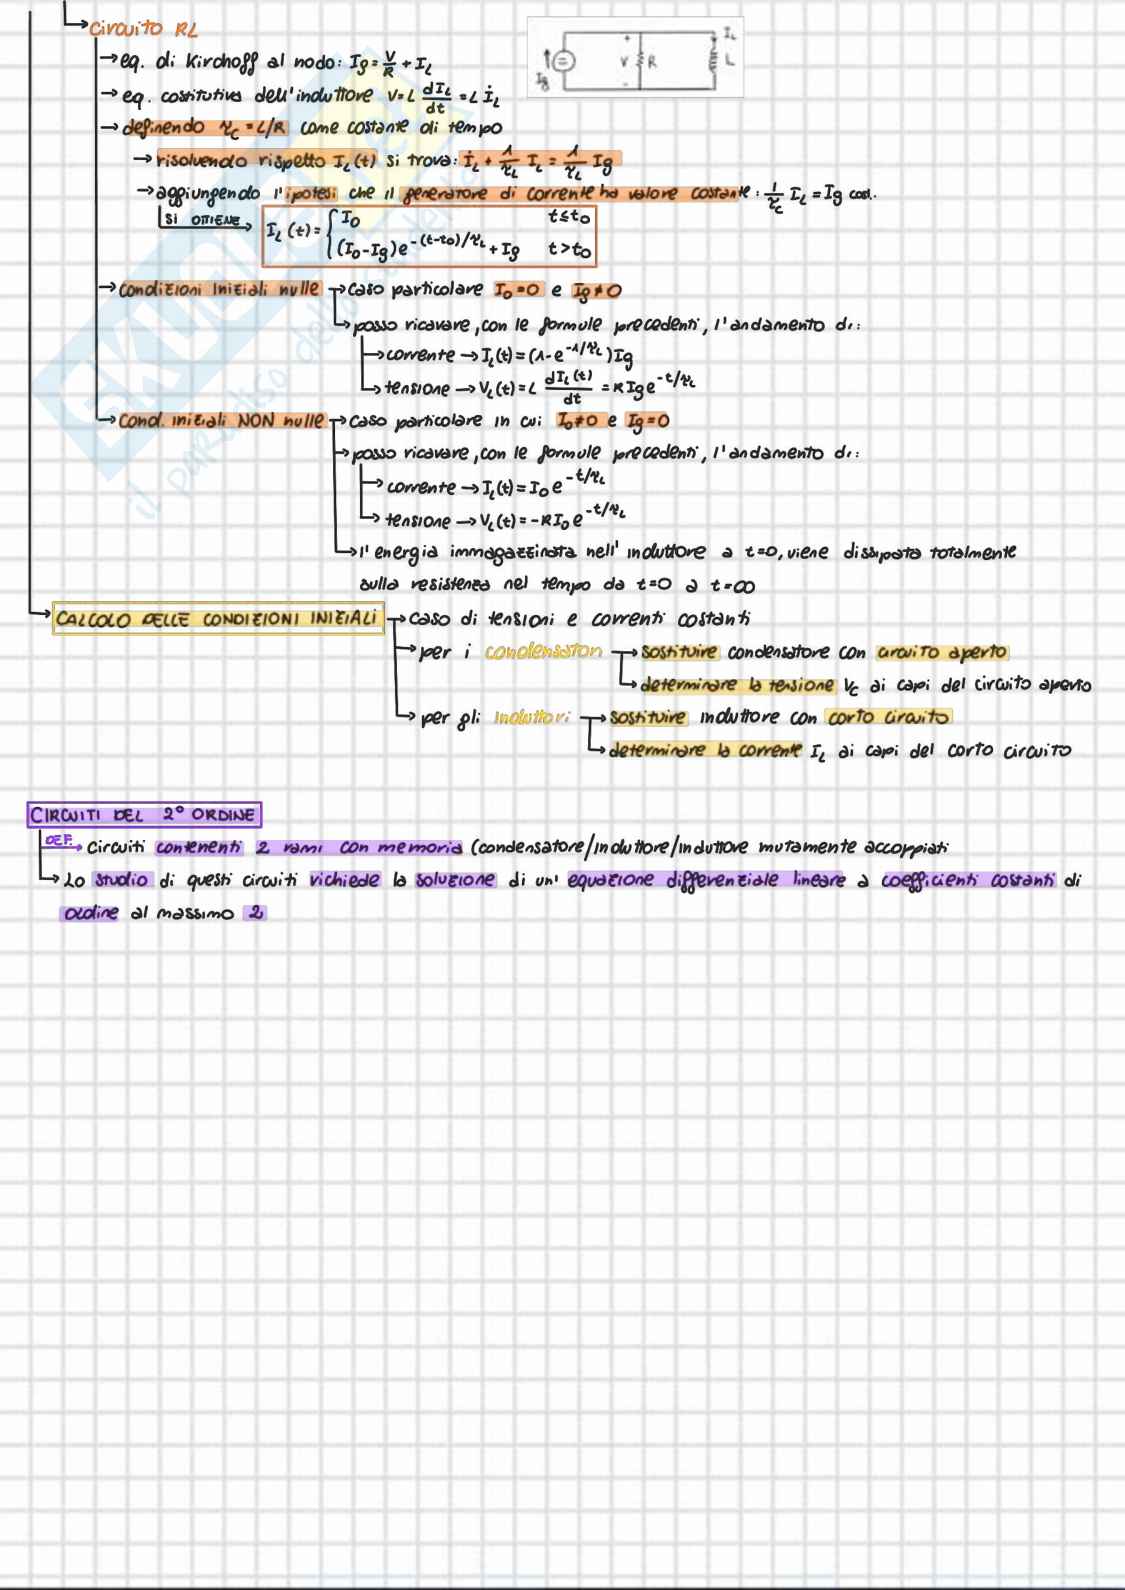 Circuito RL
→ eq. di Kirchoff al nodo: Ig = V/R + IL
→ eq. costitutiva dell'induttore V = L dIL/dt = L İL
→ definendo τC = L/R come costante di tempo
→ risolvendo rispetto IL(t) si trova: İL + 1/τL IL = 1/τL Ig
→ aggiungendo l'ipotesi che il generatore di corrente ha valore costante: 1/τC IL = Ig cost.
SI OTTIENE → IL(t) = { I0 t ≤ t0
(I0 - Ig)e^-(t-t0)/τL + Ig t > t0
→ condizioni iniziali nulle → caso particolare I0 = 0 e Ig ≠ 0
→ posso ricavare, con le formule precedenti, l'andamento di:
→ corrente → IL(t) = (1 - e^-1/τL) Ig
→ tensione → VL(t) = L dIL(t)/dt = R Ig e^-t/τL
→ Cond. iniziali NON nulle → caso particolare in cui I0 ≠ 0 e Ig = 0
→ posso ricavare, con le formule precedenti, l'andamento di:
→ corrente → IL(t) = I0 e^-t/τL
→ tensione → VL(t) = -R I0 e^-t/τL
→ l'energia immagazzinata nell'induttore a t=0, viene dissipata totalmente
sulla resistenza nel tempo da t=0 a t=∞
→ CALCOLO DELLE CONDIZIONI INIZIALI → caso di tensioni e correnti costanti
→ per i condensatori → sostituire condensatore con circuito aperto
→ determinare la tensione VC ai capi del circuito aperto
→ per gli induttori → sostituire induttore con corto circuito
→ determinare la corrente IL ai capi del corto circuito
CIRCUITI DEL 2° ORDINE
DEF. → circuiti contenenti 2 rami con memoria (condensatore/induttore/induttore mutamente accoppiati
→ Lo studio di questi circuiti richiede la soluzione di un' equazione differenziale lineare a coefficienti costanti di
ordine al massimo 2
Ig
+
V
-
R
IL
L
SKUOLA.net
il paradiso dello studente